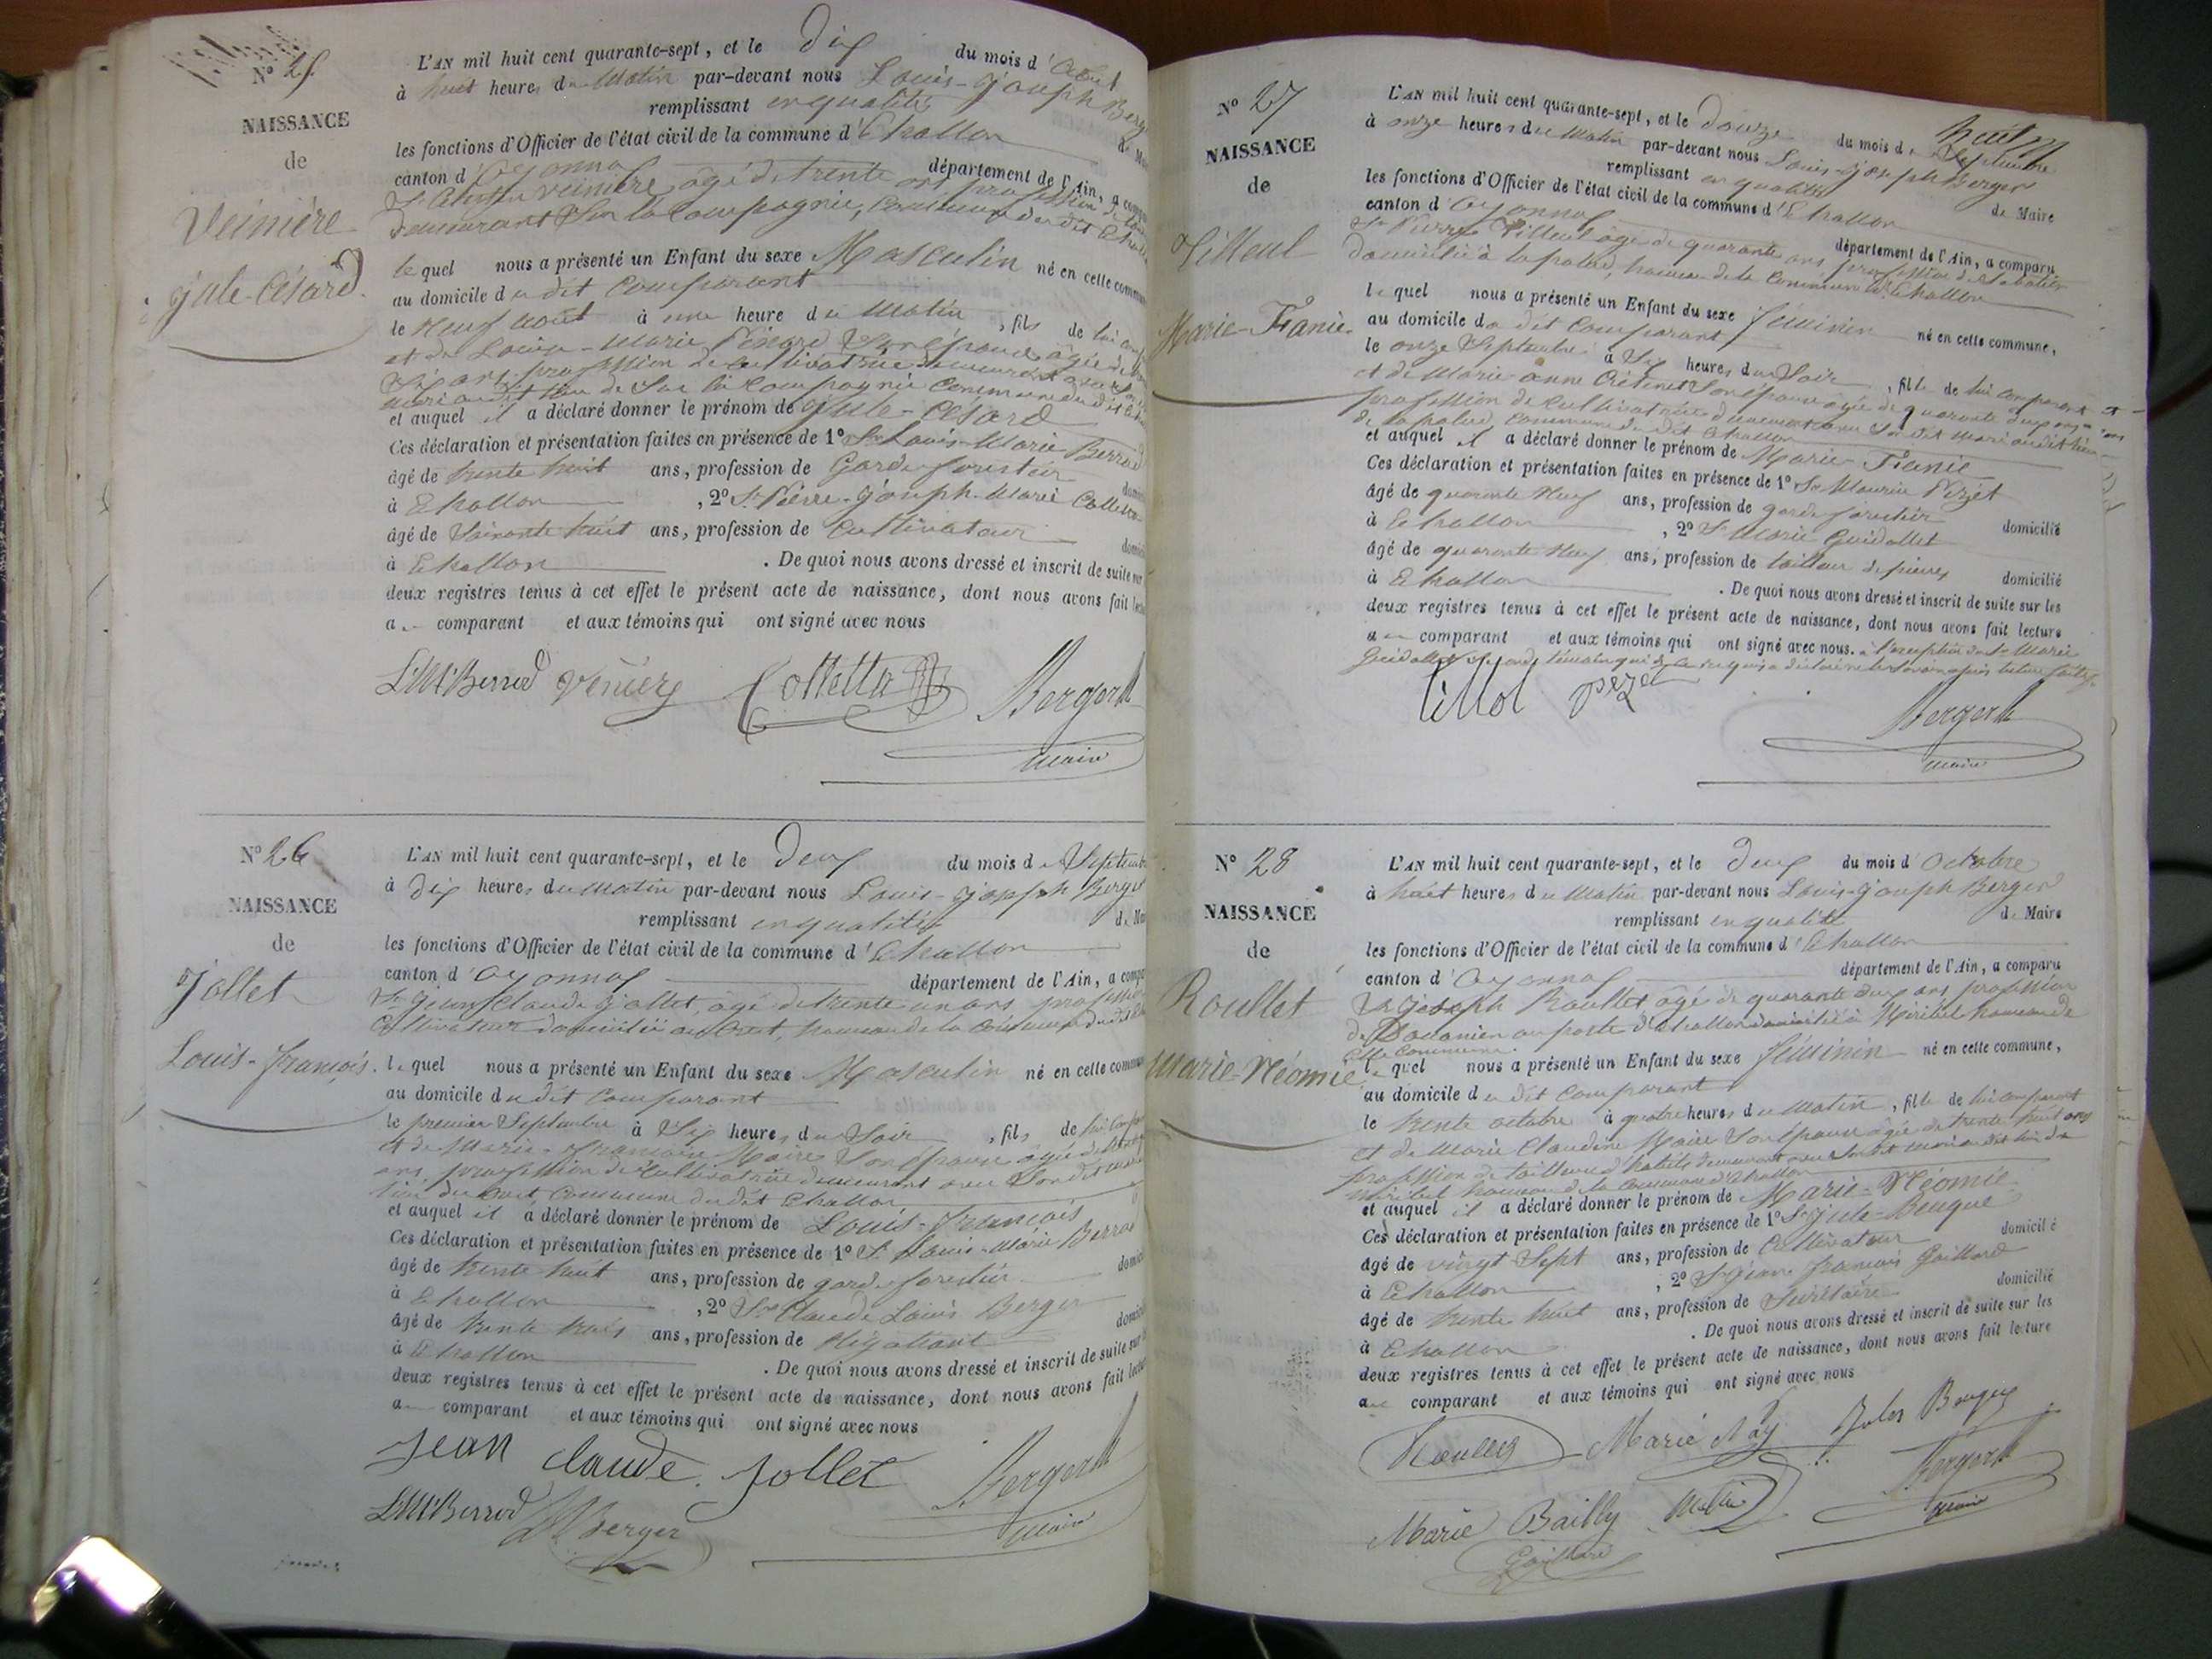 N° 25
NAISSANCE
de
Veiniére
jule-Césard
L'AN mil huit cent quarante-sept, et le Dix du mois d'Août
à huit heures du Matin par-devant nous Louis-Joseph Berger
remplissant en qualité de Maire
les fonctions d'Officier de l'état civil de la commune d'Echallon
canton d'Oyonnax département de l'Ain, a comparu
Veiniére, âgé de trente ans profession de
demeurant Sur la Compagnie, Commune du dit Echallon
le quel nous a présenté un Enfant du sexe Masculin né en cette commune
au domicile du dit Comparant
le Neuf Août à une heure du Matin, fils de lui comparant
et de Louise-Marie Son épouse âgée de
ans, profession de cultivatrice demeurant avec son
mari au dit lieu de Sur la Compagnie Commune du dit Echallon
et auquel il a déclaré donner le prénom de jule-Césard
Ces déclaration et présentation faites en présence de 1° Sr Louis-Marie Berrod
âgé de trente huit ans, profession de Garde forestier domicilié
à Echallon, 2° Sr Pierre-Joseph-Marie Colletta
âgé de Soixante huit ans, profession de Cultivateur domicilié
à Echallon. De quoi nous avons dressé et inscrit de suite sur les
deux registres tenus à cet effet le présent acte de naissance, dont nous avons fait lecture
au comparant et aux témoins qui ont signé avec nous
LM Berrod Véniere Colletta Berger
maire
N° 26
NAISSANCE
de
Jollet
Louis-françois
L'AN mil huit cent quarante-sept, et le Deux du mois de Septembre
à Dix heures du Matin par-devant nous Louis-Joseph Berger
remplissant en qualité de Maire
les fonctions d'Officier de l'état civil de la commune d'Echallon
canton d'Oyonnax département de l'Ain, a comparu
Sr Jean Claude Jollet, âgé de trente un ans profession
Cultivateur domicilié au Crêt, hameau de la Commune du dit Echallon
le quel nous a présenté un Enfant du sexe Masculin né en cette commune
au domicile du dit Comparant
le premier Septembre à Six heures du Soir, fils de lui Comparant
et de Marie-françoise Maire Son épouse âgée de
ans profession de Cultivatrice demeurant avec Son dit mari
lieu du Crêt Commune du dit Echallon
et auquel il a déclaré donner le prénom de Louis-françois
Ces déclaration et présentation faites en présence de 1° Sr Louis-Marie Berrod
âgé de trente huit ans, profession de garde forestier domicilié
à Echallon, 2° Sr Claude Louis Berger
âgé de trente trois ans, profession de Négotiant domicilié
à Echallon. De quoi nous avons dressé et inscrit de suite sur les
deux registres tenus à cet effet le présent acte de naissance, dont nous avons fait lecture
au comparant et aux témoins qui ont signé avec nous
Jean claude Jollet Berger
LM Berrod Berger maire
N° 27
NAISSANCE
de
Tilleul
Marie-Franie
huit
L'AN mil huit cent quarante-sept, et le Douze du mois de Septembre
à onze heures du Matin par-devant nous Louis-Joseph Berger
remplissant en qualité de Maire
les fonctions d'Officier de l'état civil de la commune d'Echallon
canton d'Oyonnax département de l'Ain, a comparu
Sr Pierre Tilleul âgé de quarante ans profession de Sabotier
Domicilié à la palud, hameau de la Commune d'Echallon
le quel nous a présenté un Enfant du sexe féminin né en cette commune,
au domicile du dit Comparant
le onze Septembre à Six heures du Soir, fille de lui comparant
et de Marie-anne Crétinet Son épouse âgée de quarante ans
profession de Cultivatrice demeurant avec Son dit mari au dit lieu
de la palud Commune du dit Echallon
et auquel il a déclaré donner le prénom de Marie-Franie
Ces déclaration et présentation faites en présence de 1° Sr Maurice Pizet
âgé de quarante Neuf ans, profession de garde forestier domicilié
à Echallon, 2° Sr Marie Guidollet
âgé de quarante Neuf ans, profession de tailleur de pierres domicilié
à Echallon. De quoi nous avons dressé et inscrit de suite sur les
deux registres tenus à cet effet le présent acte de naissance, dont nous avons fait lecture
au comparant et aux témoins qui ont signé avec nous. à l'exception de Sr Marie
Guidollet Second témoin qui de ce requis a déclaré ne le Savoir après lecture faite
tillol pizet Berger
maire
N° 28
NAISSANCE
de
Roullet
Marie-Néomie
L'AN mil huit cent quarante-sept, et le Deux du mois d'Octobre
à huit heures du Matin par-devant nous Louis-Joseph Berger
remplissant en qualité de Maire
les fonctions d'Officier de l'état civil de la commune d'Echallon
canton d'Oyonnax département de l'Ain, a comparu
Sr Joseph Roullet âgé de quarante deux ans profession
de Douanier au poste d'Echallon domicilié à Miribel hameau de
cette Commune.
le quel nous a présenté un Enfant du sexe féminin né en cette commune,
au domicile du dit Comparant
le trente octobre à quatre heures du Matin, fille de lui comparant
et de Marie Claudine Maire Son épouse âgée de trente huit ans
profession de tailleuse d'habits demeurant avec Son dit mari au dit lieu de
Miribel hameau de la Commune d'Echallon
et auquel il a déclaré donner le prénom de Marie-Néomie
Ces déclaration et présentation faites en présence de 1° Sr Jule-Bouque
âgé de vingt Sept ans, profession de Cultivateur domicilié
à Echallon, 2° Sr Jean François Gaillard
âgé de trente huit ans, profession de Secrétaire domicilié
à Echallon. De quoi nous avons dressé et inscrit de suite sur les
deux registres tenus à cet effet le présent acte de naissance, dont nous avons fait lecture
au comparant et aux témoins qui ont signé avec nous
Roullet Marie Jules Berger
Marie Bailly maire
Gaillard